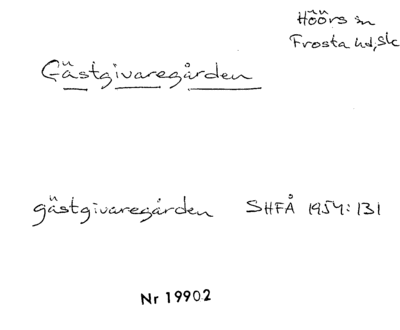 Höörs sn
Frosta hd, Sk
Gästgivaregården
gästgivaregården SHFÅ 1954: 131
Nr 19902